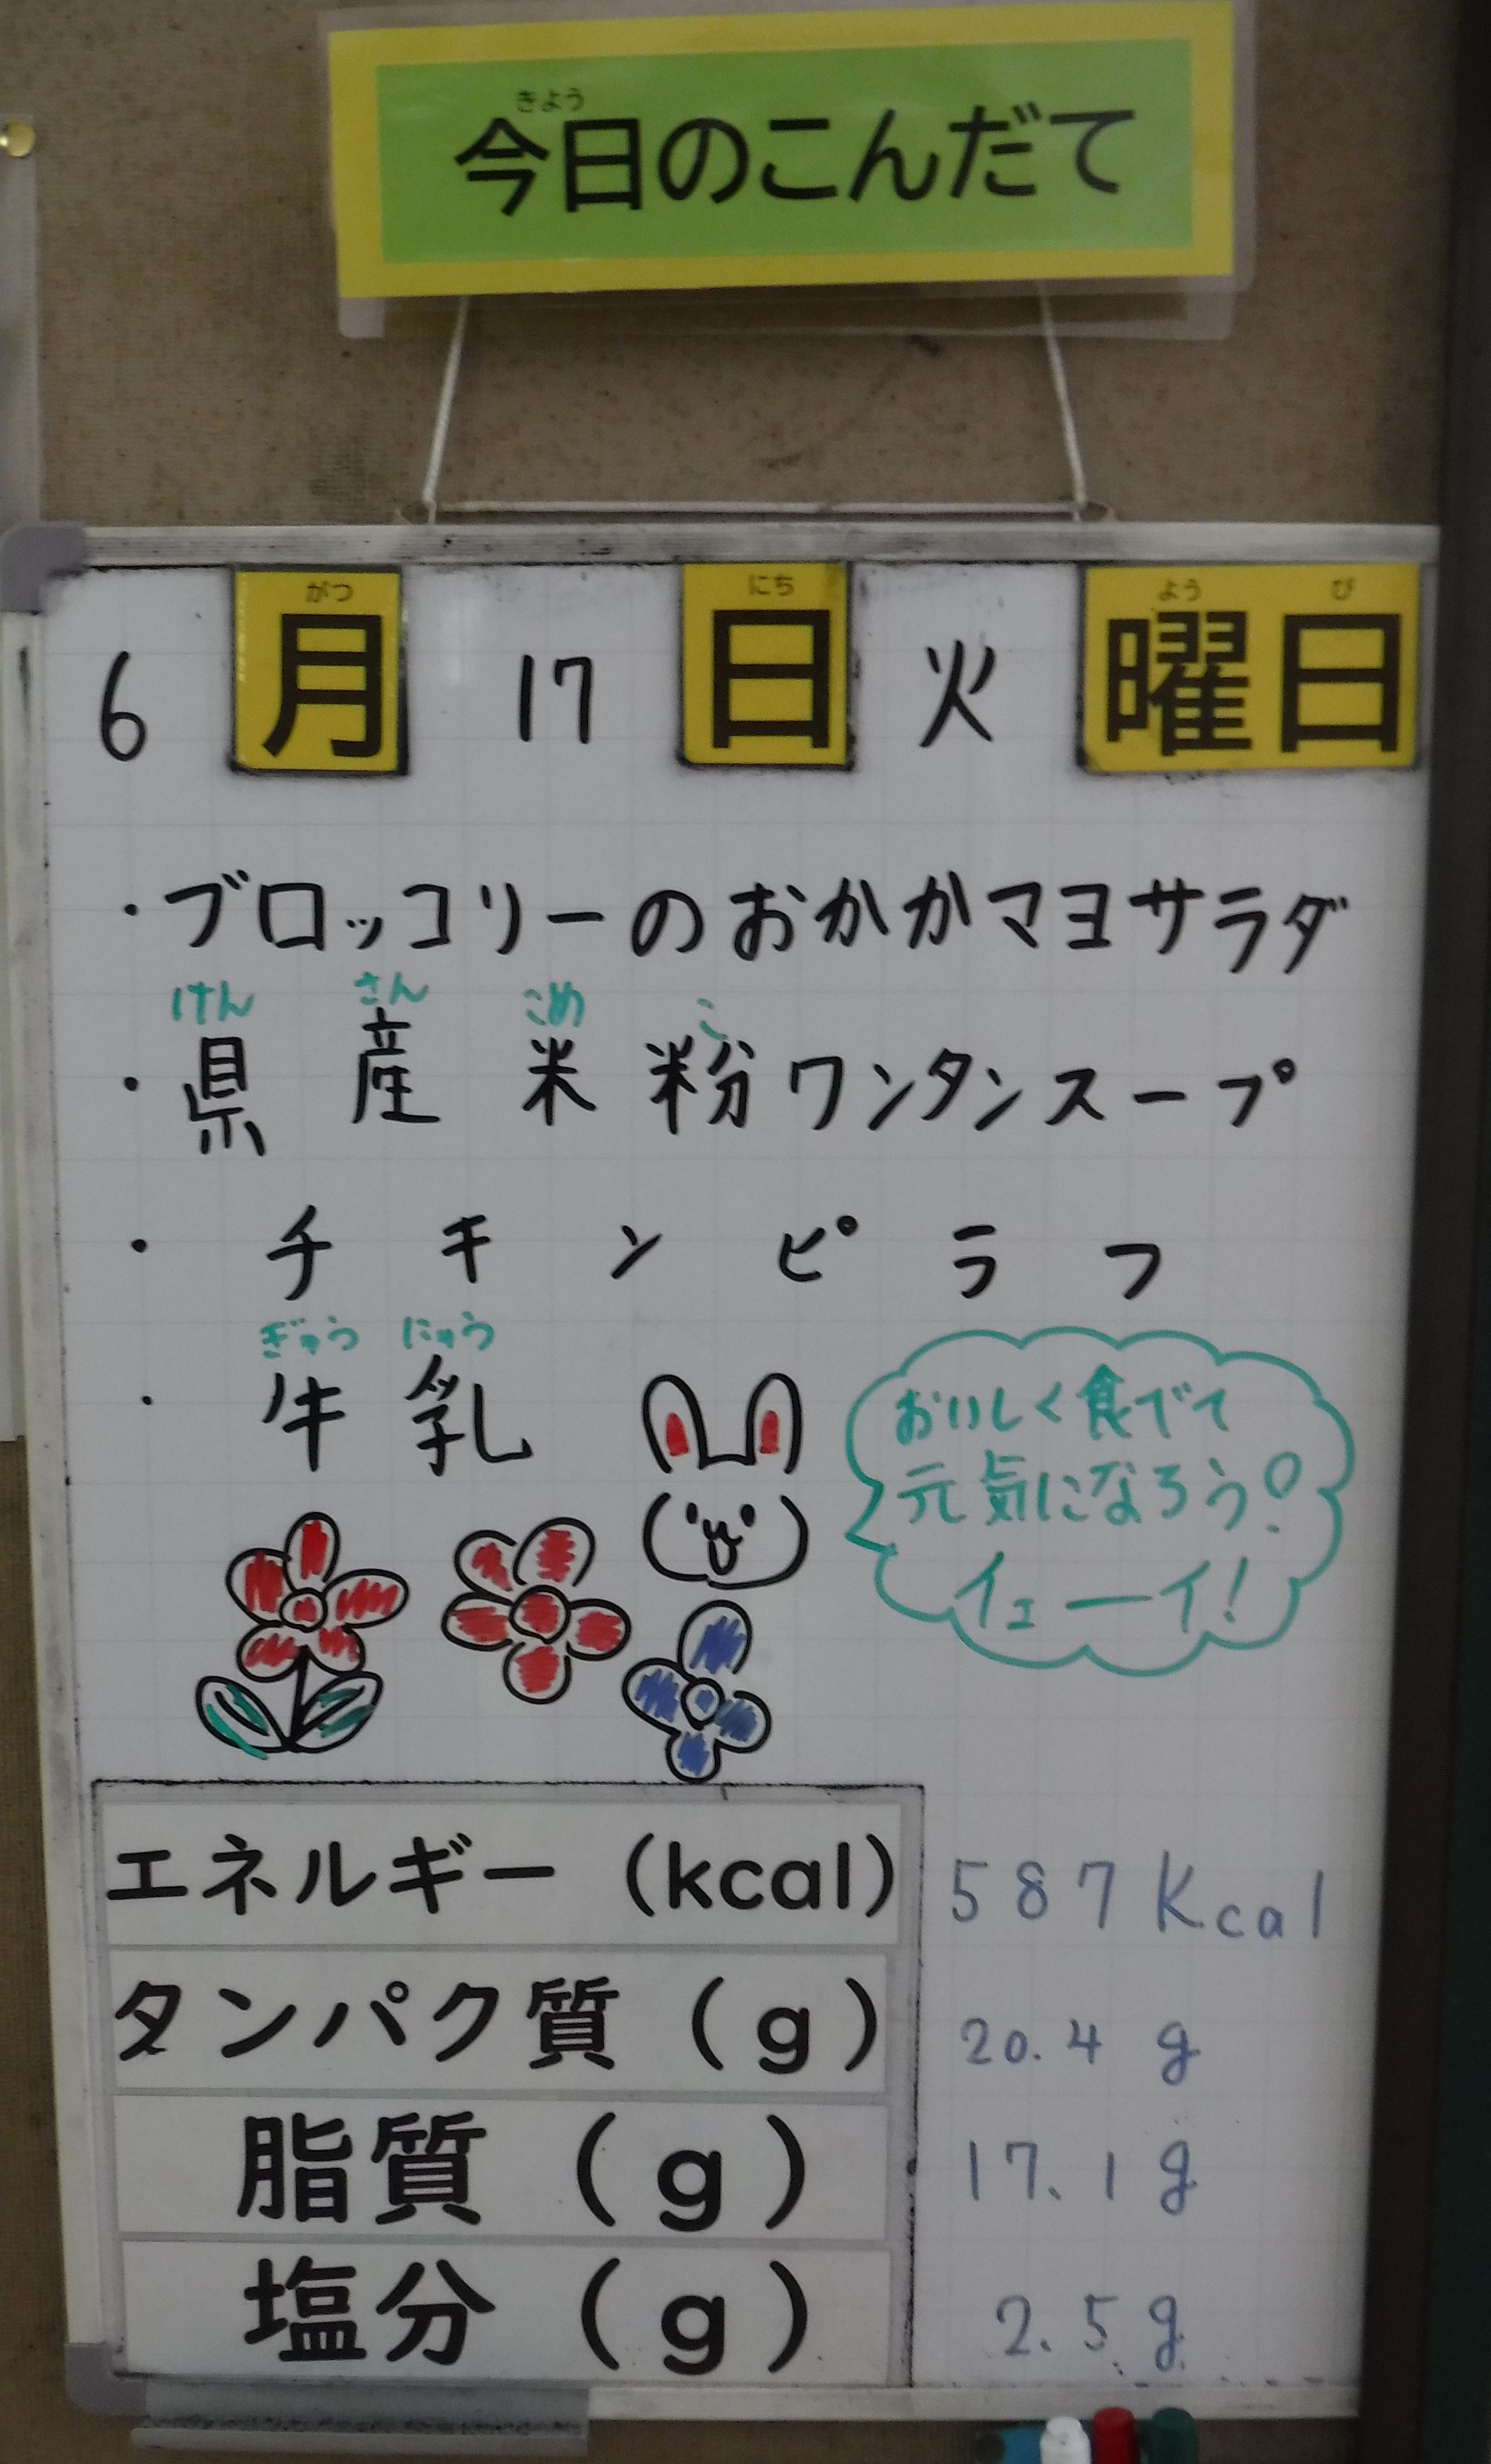 きょう
今日のこんだて
がつ にち よう び
6 月 17 日 火 曜日
・ブロッコリーのおかかマヨサラダ
けん さん こめ こ
・県産米粉ワンタンスープ
・チキンピラフ
ぎゅう にゅう
・牛乳
おいしく食べて
元気になろう!
イェーイ!
エネルギー（kcal） 587 Kcal
タンパク質（g） 20.4 g
脂質（g） 17.1 g
塩分（g） 2.5 g